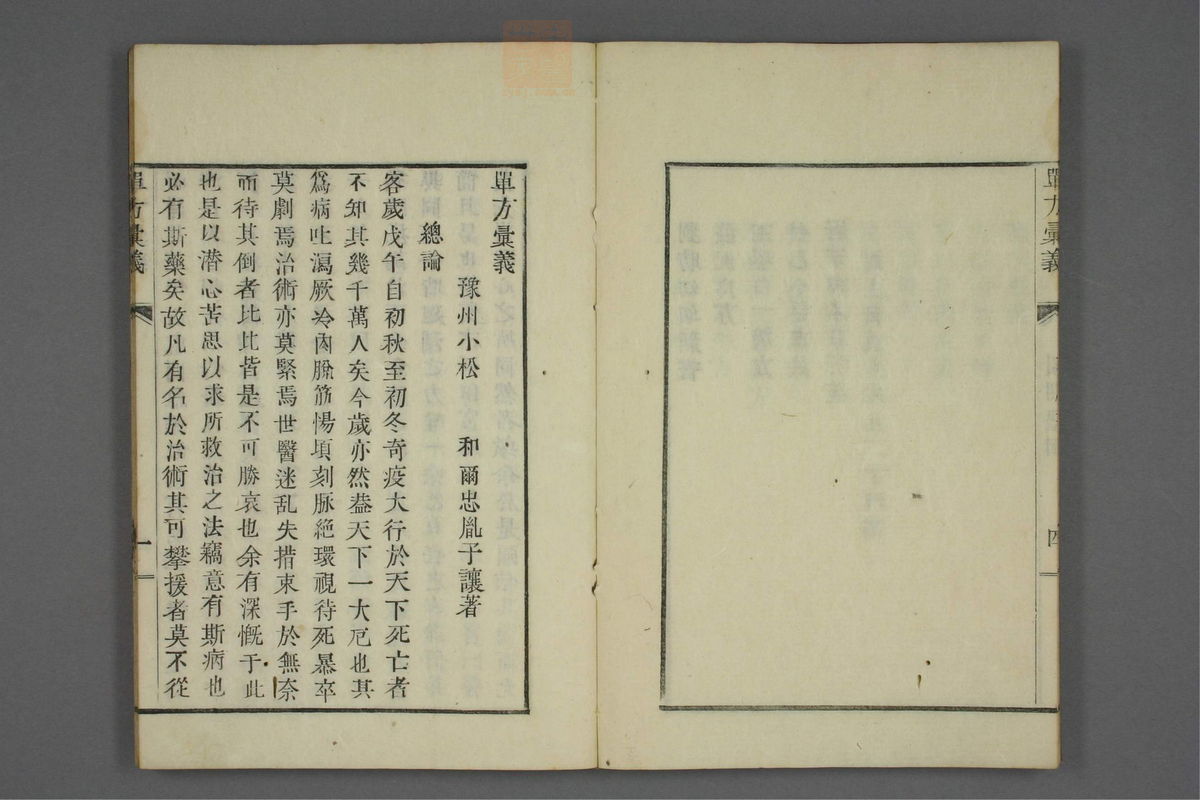 單方彙義
四
單方彙義
豫州小松 和爾忠胤子讓著
總論
客歲戊午自初秋至初冬奇疫大行於天下死亡者
不知其幾千萬人矣今歲亦然葢天下一大厄也其
爲病吐瀉厥冷肉脫筋惕頃刻脉絶環視待死暴卒
莫劇焉治術亦莫緊焉世醫迷乱失措束手於無奈
而待其倒者比比皆是不可勝哀也余有深慨于此
也是以潜心苦思以求所救治之法竊意有斯病也
必有斯藥矣故凡有名於治術其可攀援者莫不從
單方彙義
一